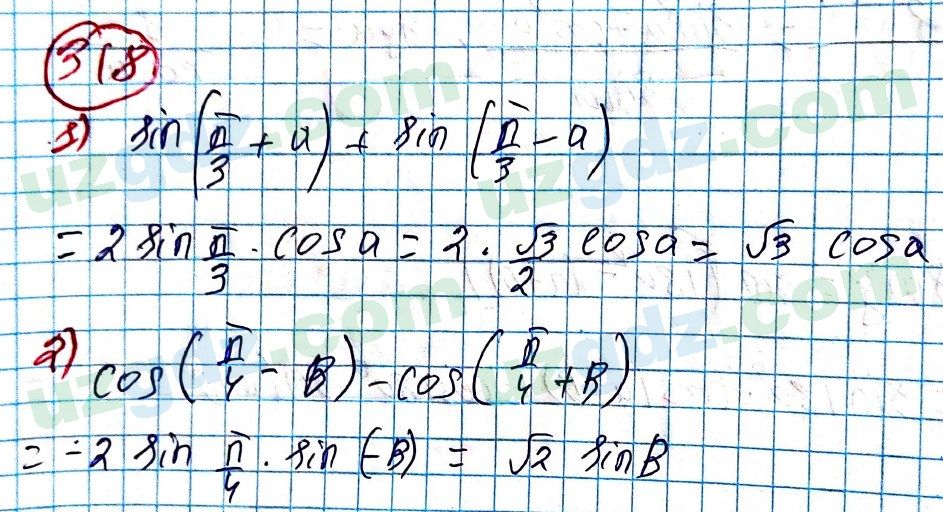 318
1) sin(π/3 + a) + sin(π/3 - a)
= 2 sin π/3 · cos a = 2 · √3/2 cos a = √3 cos a
2) cos(π/4 - B) - cos(π/4 + B)
= -2 sin π/4 · sin (-B) = √2 sin B
uzgdz.com